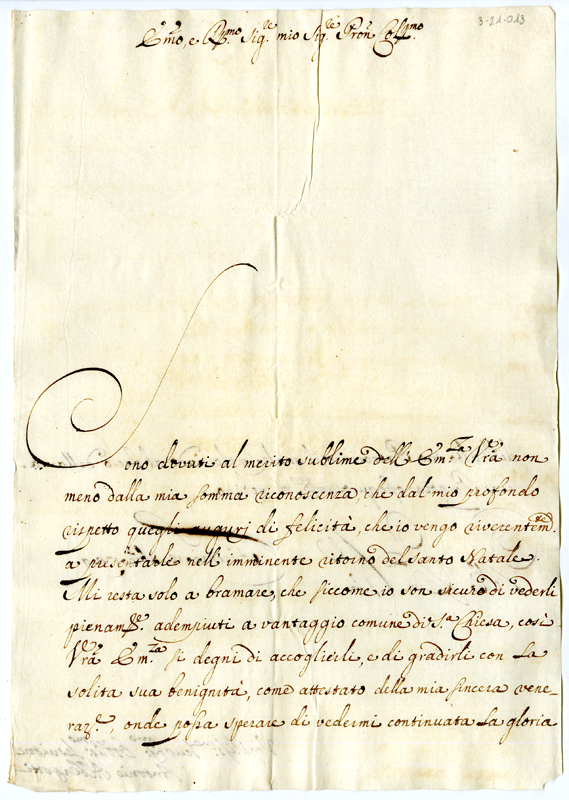 3-21-013
Em̃o, e Rmo Sigre mio Sigre Pron Colmo
Sono dovuti al merito sublime dell' Em.za Vrã non
meno dalla mia somma riconoscenza, che dal mio profondo
rispetto quegli augurj di felicità, che io vengo riverentemte
a presentarle nell' imminente ritorno del Santo Natale.
Mi resta solo a bramare, che siccome io son sicuro di vederli
pienamte adempiuti a vantaggio comune di S.a Chiesa, così
Vrã Em.za si degni di accoglierli, e di gradirli con la
solita sua benignità, come attestato della mia sincera vene-
raz.e, onde possa sperare di vedermi continuata la gloria